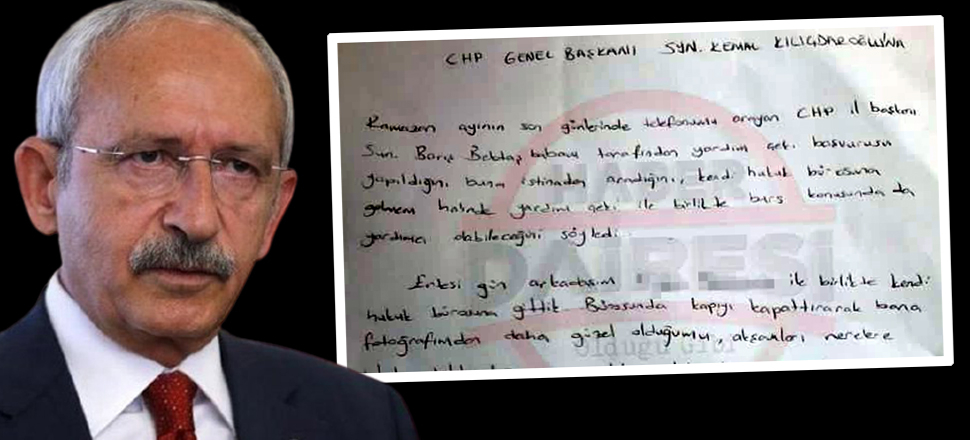 CHP GENEL BAŞKANI SYN. KEMAL KILIÇDAROĞLU'NA
Ramazan ayının son günlerinde telefonumu arayan CHP il başkanı
Syn. Barış Bektaş babam tarafından yardım çeki başvurusu
yapıldığını, buna istinaden aradığını, kendi hukuk bürosuna
gelmem halinde yardım çeki ile birlikte burs konusunda da
yardımcı olabileceğini söyledi.
Ertesi gün arkadaşım ile birlikte kendi
hukuk bürosuna gittik. Bürosunda kapıyı kapattırarak bana
fotoğrafımdan daha güzel olduğumu, akşamları nerelere
HABER
DAİRESİ
Olduğu Gibi